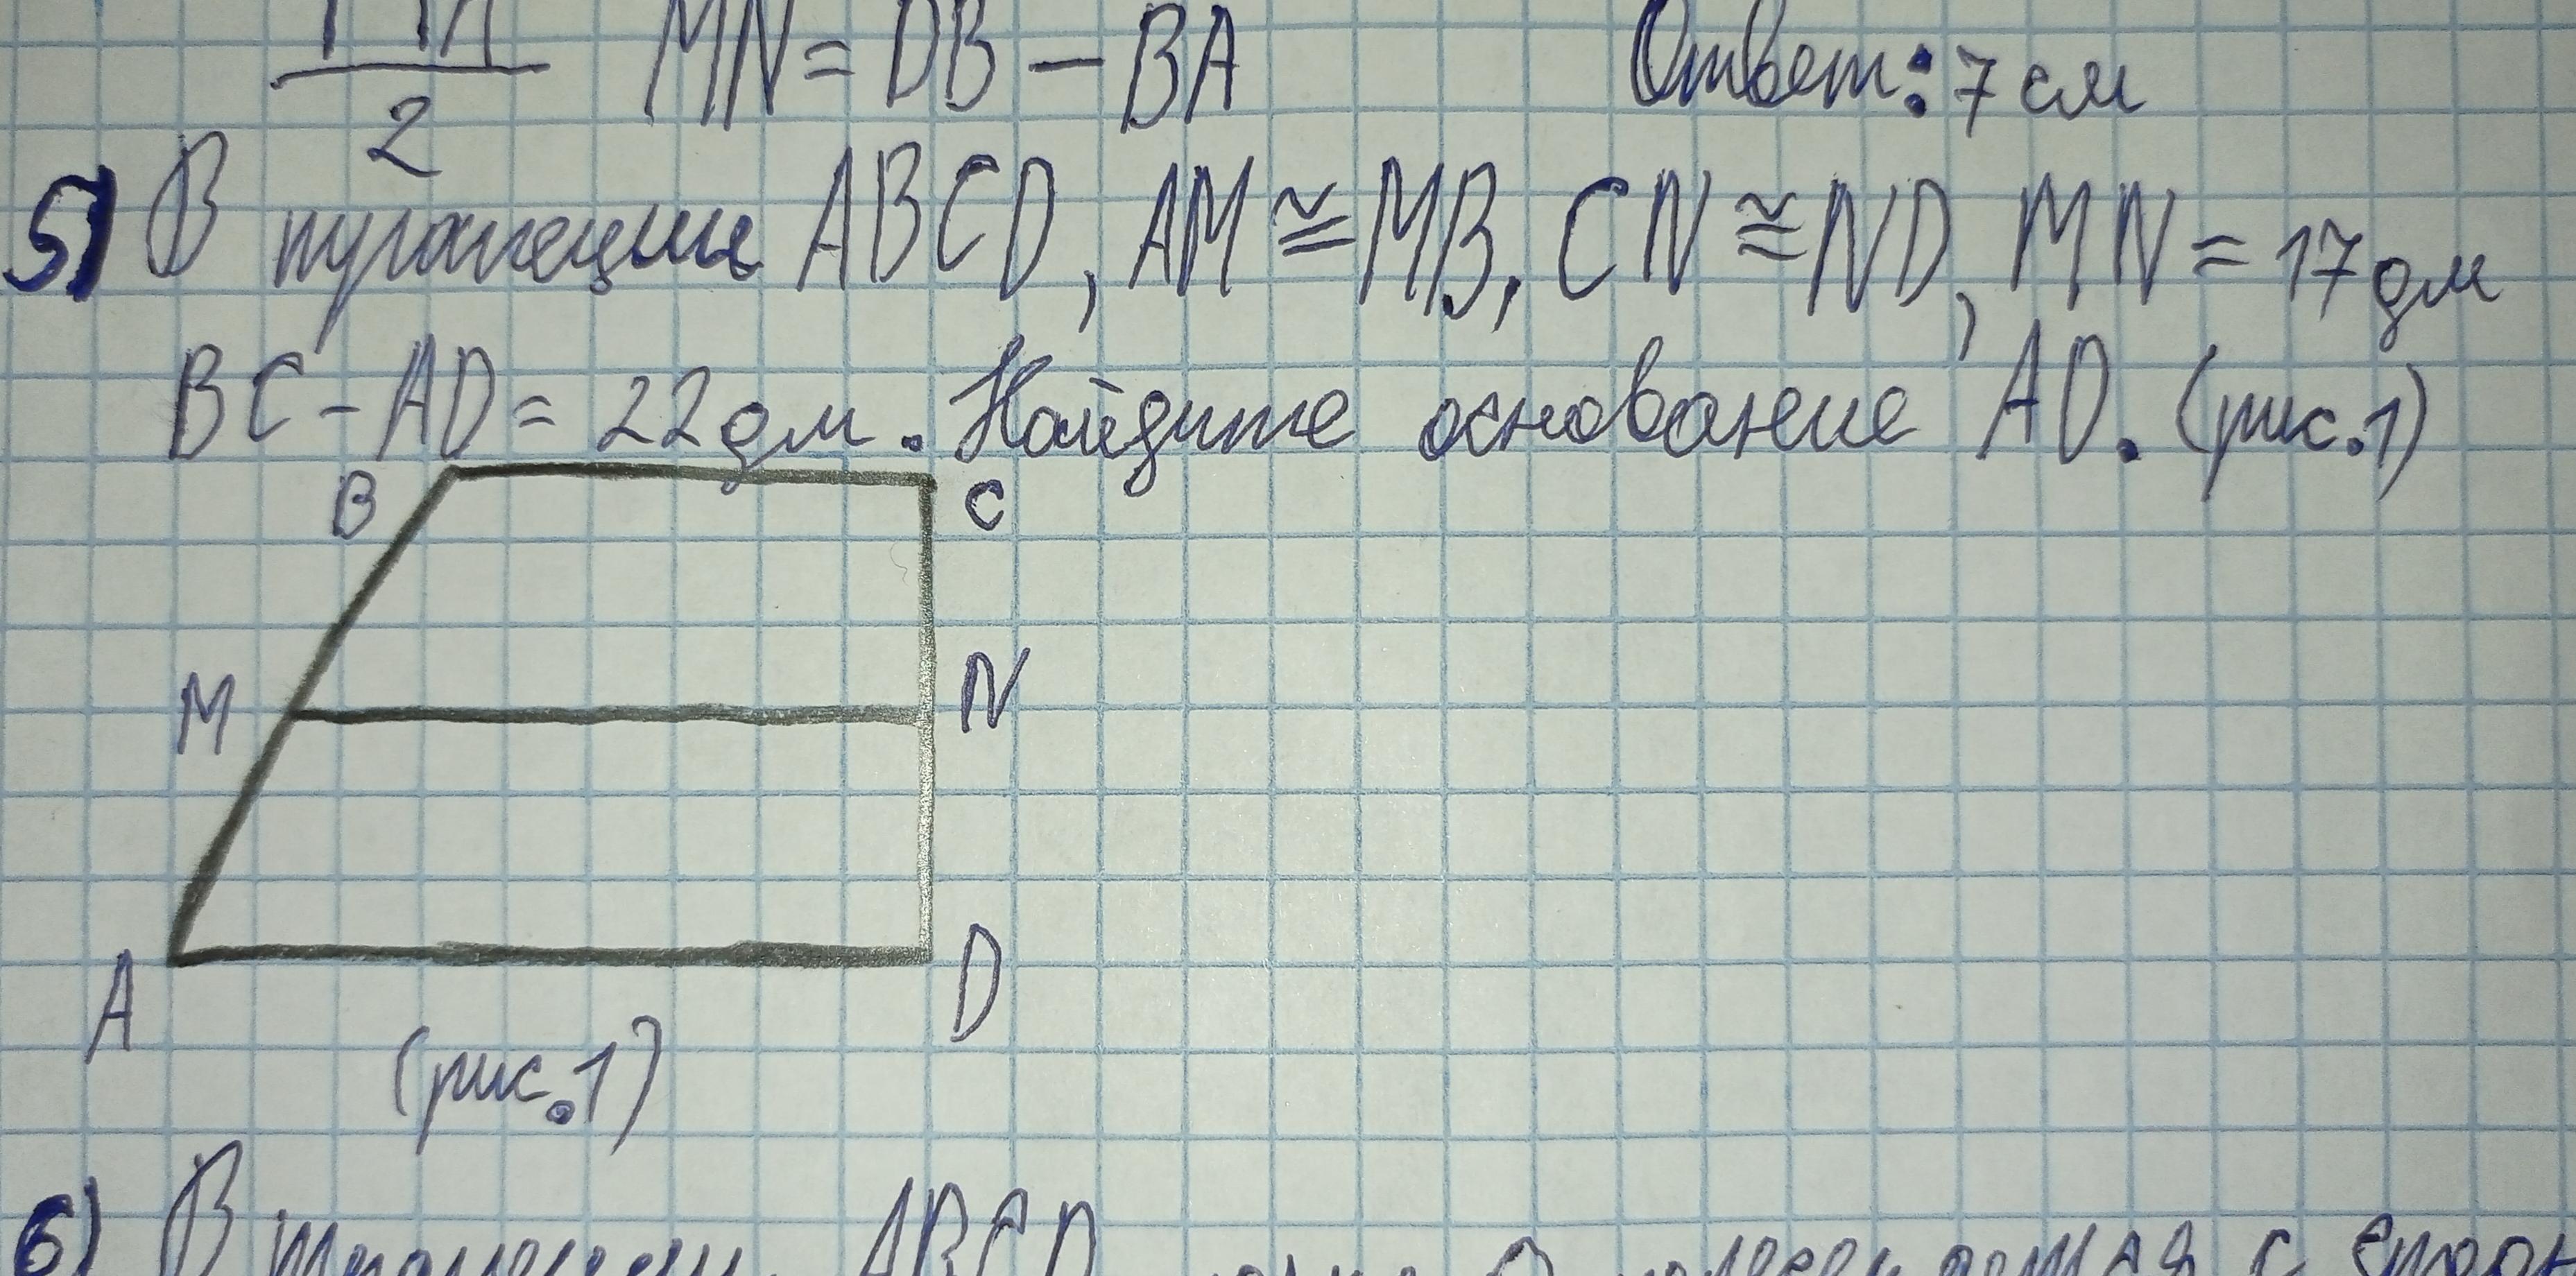 2 MN = DB - BA Ответ: 7 см
5) В трапеции ABCD, AM ≅ MB, CN ≅ ND, MN = 17 дм
BC - AD = 22 дм. Найдите основание AD. (рис.1)
B
C
M
N
A
D
(рис.1)
6) В трапеции ABCD